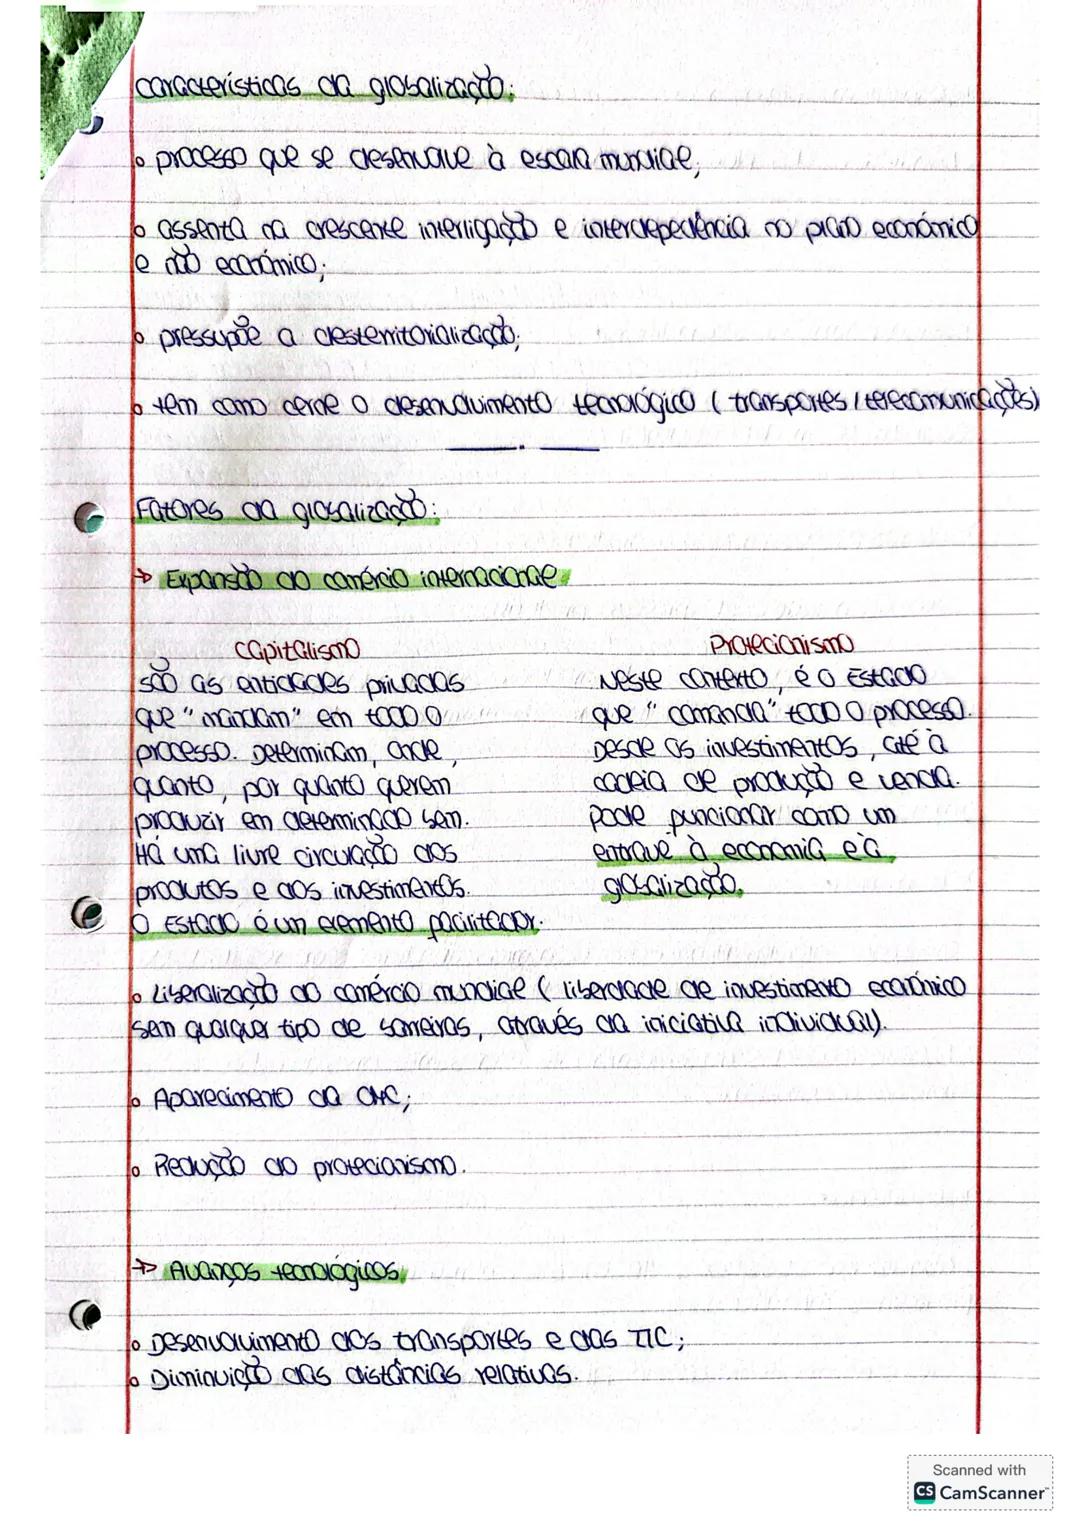 características da globalização:
o processo que se desenvolve à escala mundial;
o assenta na crescente interligação e interdependência no plano económico
e não económico;
o pressupõe a desterritorialização;
o tem como cerne o desenvolvimento tecnológico ( transportes / telecomunicações)
Fatores da globalização:
→ Expansão do comércio internacional
capitalismo
são as entidades privadas
que "mandam" em todo o
processo. Determinam, onde,
quanto, por quanto querem
produzir em determinado bem.
Há uma livre circulação dos
produtos e dos investimentos.
O Estado é um elemento facilitador.
Protecionismo
Neste contexto, é o Estado
que "comanda" todo o processo.
Desde os investimentos, até à
cadeia de produção e venda.
Pode funcionar como um
entrave à economia e à
globalização.
o Liberalização do comércio mundial ( liberdade de investimento económico
sem qualquer tipo de barreiras, através da iniciativa individual).
o Aparecimento da OMC;
o Redução do protecionismo.
→ Avanços tecnológicos
o Desenvolvimento dos transportes e das TIC;
o Diminuição das distâncias relativas.
Scanned with
CS CamScanner